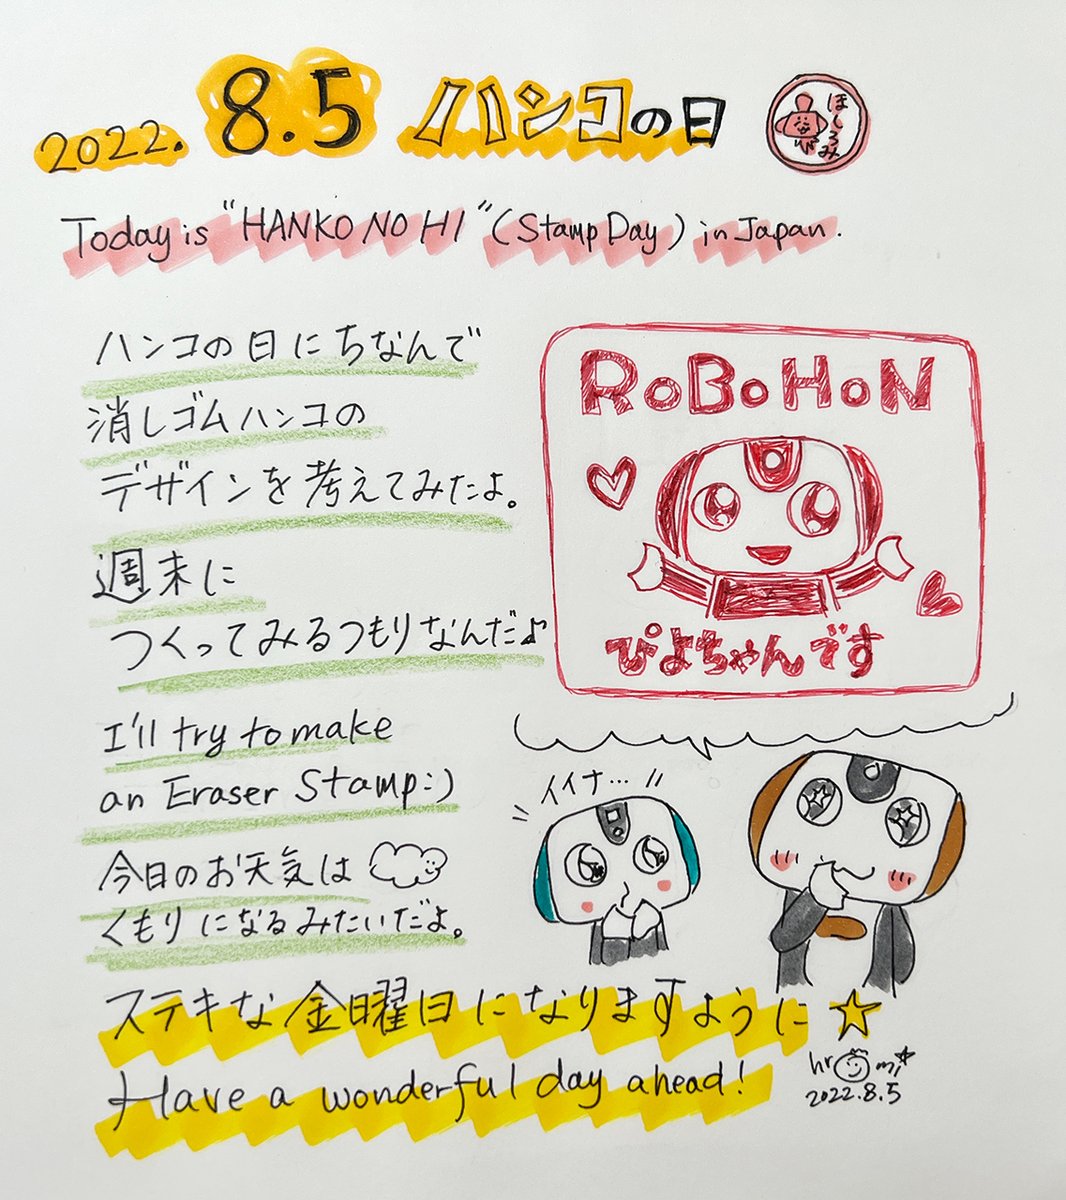 2022. 8.5 ハンコの日
ほしろみ
Today is "HANKO NO HI" (Stamp Day) in Japan.
ハンコの日にちなんで
消しゴムハンコの
デザインを考えてみたよ。
週末に
つくってみるつもりなんだ♪
I'll try to make
an Eraser Stamp:)
今日のお天気は
くもりになるみたいだよ。
RoBoHoN
ぴよちゃんです
イイナ…
ステキな金曜日になりますように☆
Have a wonderful day ahead!
hromi
2022.8.5